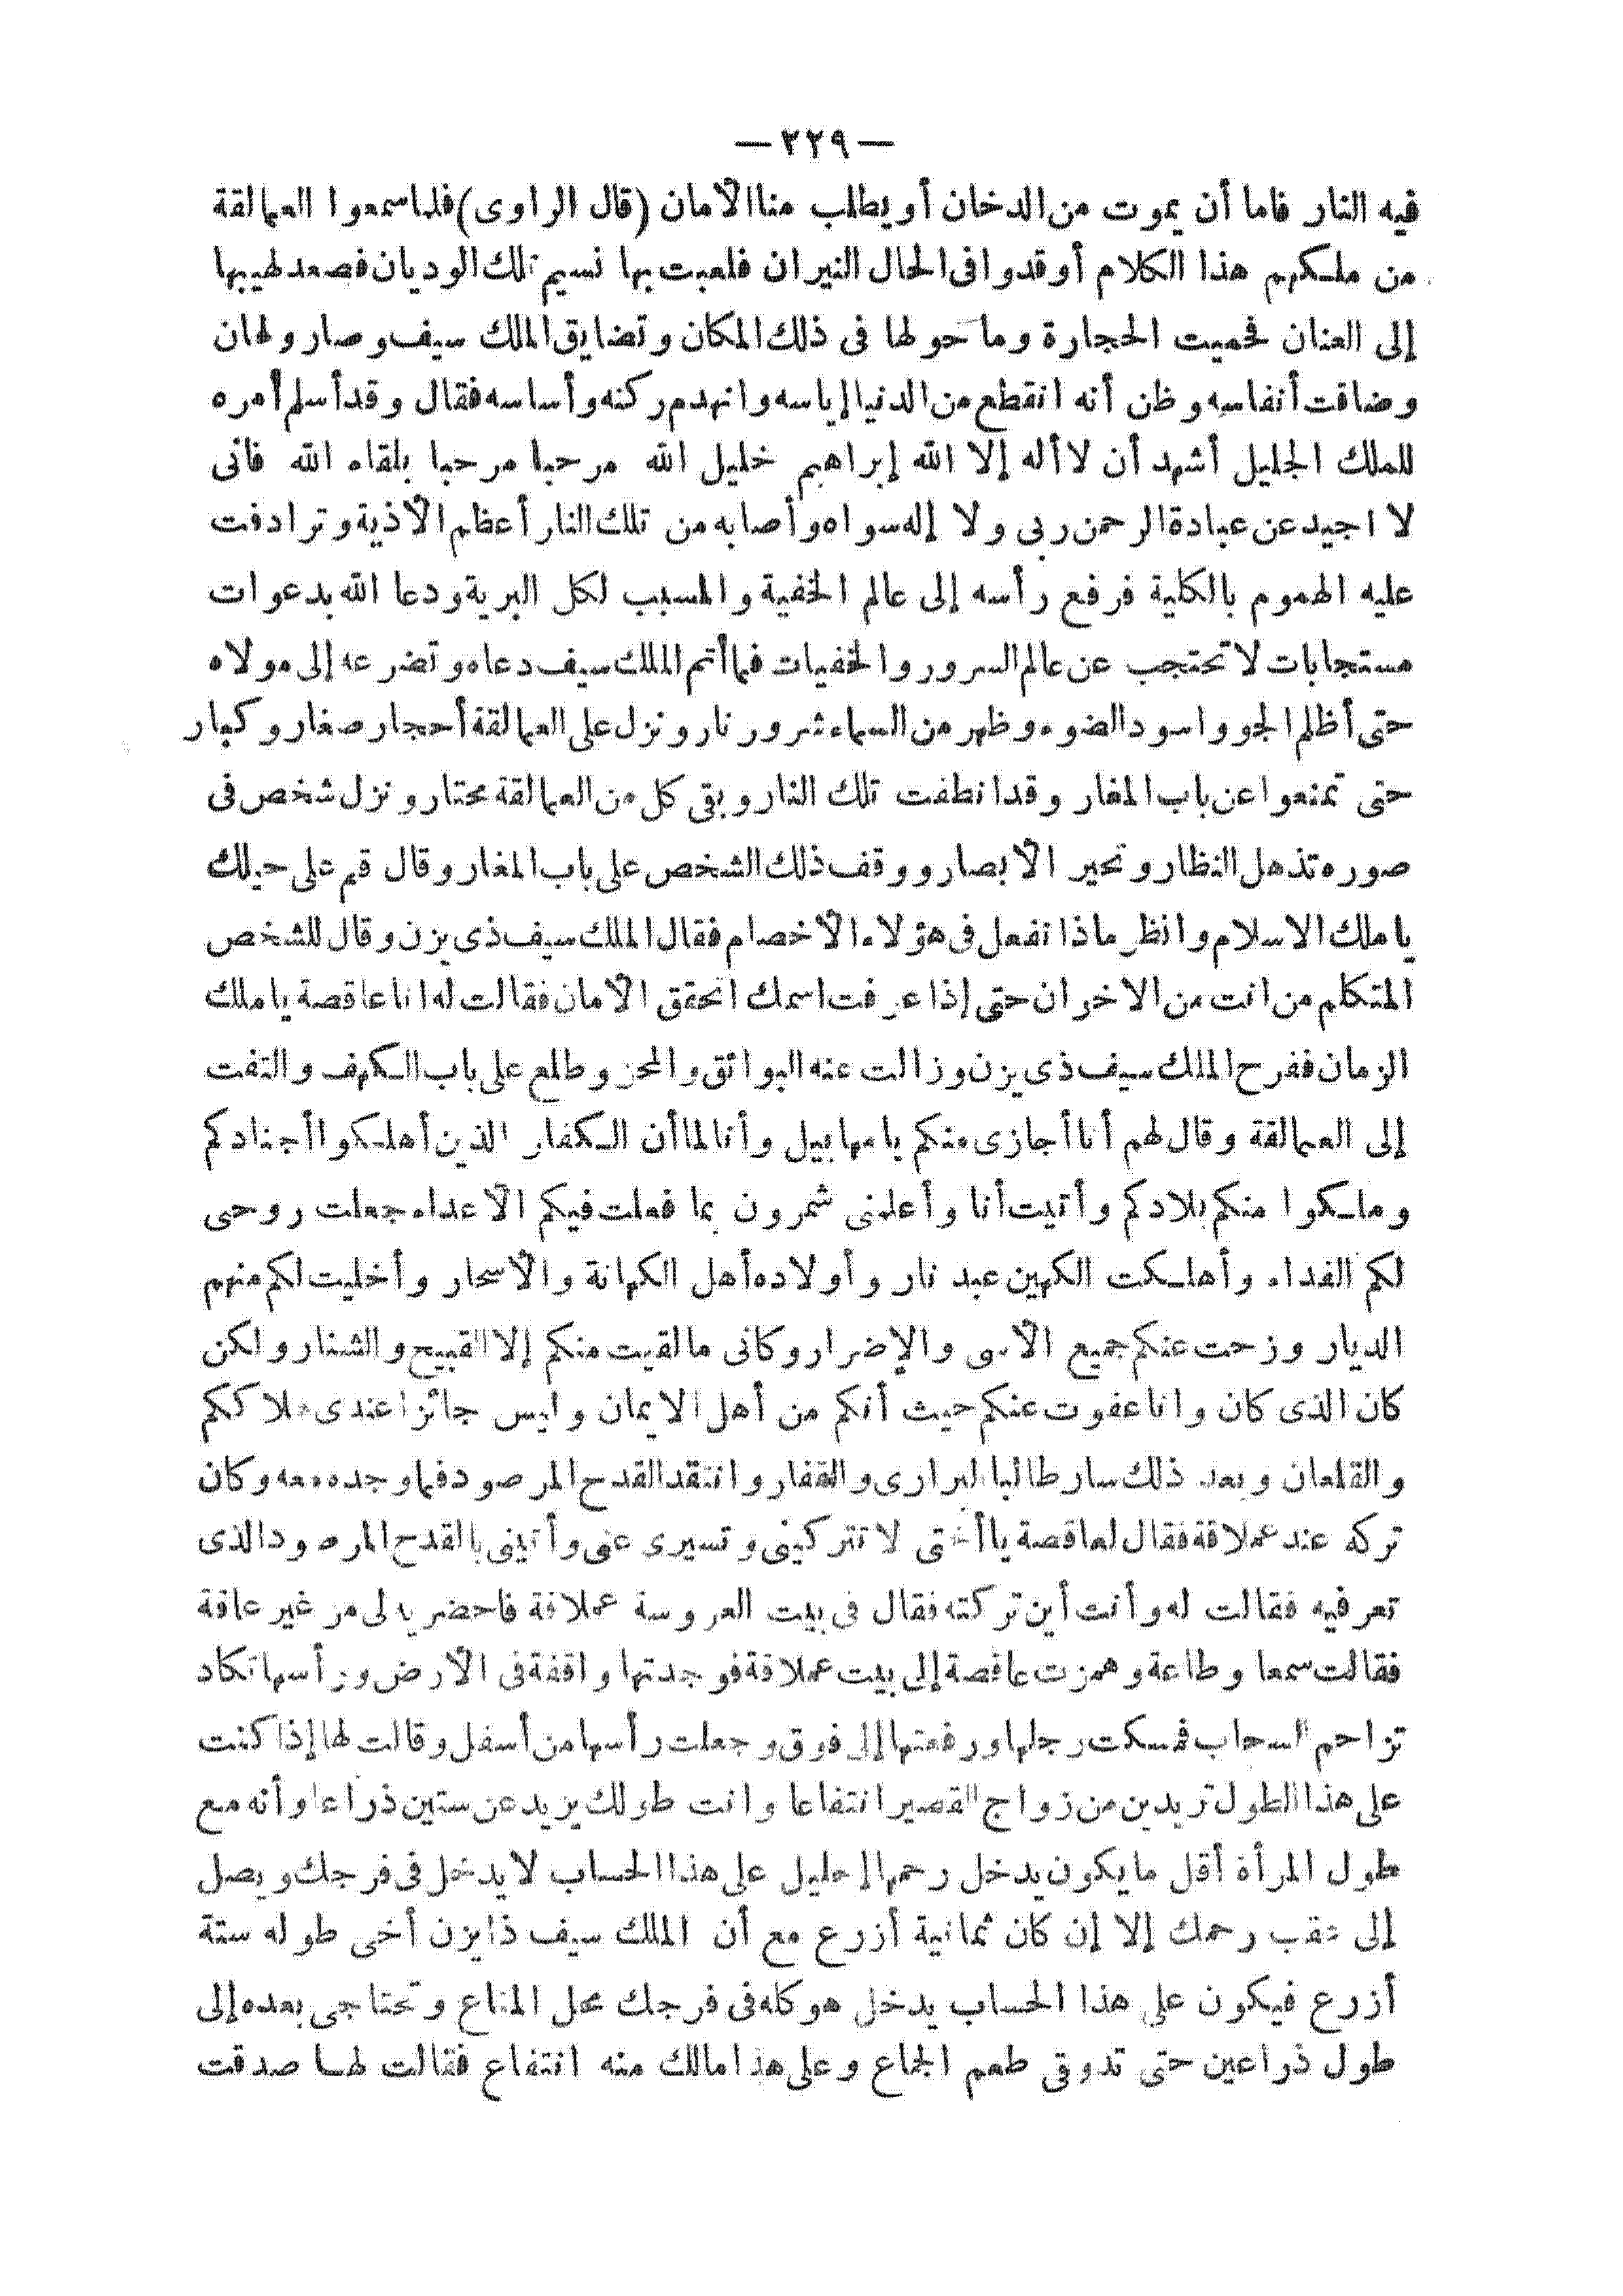 — ٢٢٩ —
فيه النار فاما أن يموت من الدخان أو يطلب منا الأمان (قال الراوى) فلما سمعوا العمالقة
من ملكهم هذا الكلام أوقدوا فى الحال النيران فلعبت بها نسيم تلك الوديان فصعد لهيبها
إلى العنان فحميت الحجارة وما حولها فى ذلك المكان وتضايق الملك سيف وصار ولهان
وضاقت أنفاسه وظن أنه انقطع من الدنيا إياسه وانهدم ركنه وأساسه فقال وقد أسلم أمره
للملك الجليل أشهد أن لا أله إلا الله إبراهيم خليل الله مرحبا مرحبا بلقاء الله فانى
لا اجيد عن عبادة الرحمن ربى ولا إله سواه وأصابه من تلك النار أعظم الأذية وترادفت
عليه الهموم بالكلية فرفع رأسه إلى عالم الخفية والمسبب لكل البرية ودعا الله بدعوات
مستجابات لا تحتجب عن عالم السرور والخفيات فما أتم الملك سيف دعاه وتضرعه إلى مولاه
حتى أظلم الجو واسود الضوء وظهر من السماء شرور نار ونزل على العمالقة أحجار صغار وكبار
حتى تمنعوا عن باب المغار وقد انطفت تلك النار وبقى كل من العمالقة محتار ونزل شخص فى
صوره تذهل النظار وتحير الأبصار ووقف ذلك الشخص على باب المغار وقال قم على حيلك
يا ملك الاسلام وانظر ماذا نفعل فى هؤلاء الأخصام فقال الملك سيف ذى يزن وقال للشخص
المتكلم من انت من الاخوان حتى إذا عرفت اسمك اتحقق الأمان فقالت له انا عاقصة يا ملك
الزمان ففرح الملك سيف ذى يزن وزالت عنه البوائق والمحن وطلع على باب الكهف والتفت
إلى العمالقة وقال لهم أنا أجازى منكم يا مهابيل وأنا لما أن الكفار الذين أهلكوا أجنادكم
وملكوا منكم بلادكم وأتيت أنا وأعلمنى شمرون بما فعلت فيكم الأعداء جعلت روحى
لكم الفداء وأهلكت الكهين عبد نار وأولاده أهل الكهانة والأسحار وأخليت لكم منهم
الديار وزحت عنكم جميع الأسى والإضرار وكانى ما لقيت منكم إلا القبيح والشنار ولكن
كان الذى كان وانا عفوت عنكم حيث أنكم من أهل الايمان وليس جائزا عندى هلاككم
والقلعان وبعد ذلك سار طالبا البرارى والقفار وانتقد القدح المرصود فما وجده معه وكان
تركه عند عملاقة فقال لعاقصة يا أختى لا تتركينى وتسيرى عنى وأتينى بالقدح المرصود الذى
تعرفيه فقالت له وأنت أين تركته فقال فى بيت العروسة عملاقة فاحضريه لى من غير عاقة
فقالت سمعا وطاعة وهمزت عاقصة إلى بيت عملاقة فوجدتها واقفة فى الأرض ورأسها تكاد
تزاحم السحاب فمسكت رجلها ورفعتها إلى فوق وجعلت رأسها من أسفل وقالت لها إذا كنت
على هذا الطول تريدين من زواج القصير انتفاعا وانت طولك يزيد عن ستين ذراعا وأنه مع
طول المرأة أقل ما يكون يدخل رحمها إحليل على هذا الحساب لا يدخل فى فرجك ويصل
إلى ثقب رحمك إلا إن كان ثمانية أزرع مع أن الملك سيف ذا يزن أخى طوله ستة
أزرع فيكون على هذا الحساب يدخل هو كله فى فرجك محل المتاع وتحتاجى بعده إلى
طول ذراعين حتى تدوقى طعم الجماع وعلى هذا مالك منه انتفاع فقالت لها صدقت